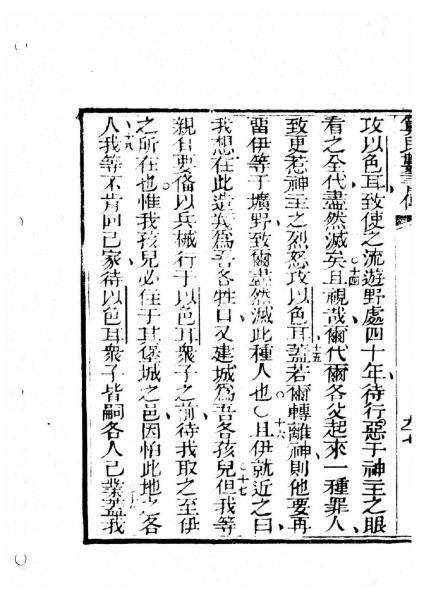 攻以色耳致使之流遊野處四十年待行惡于神主之眼
看之全代盡然滅矣十四且視哉爾代爾各父起來一種罪人
致更惹神主之烈怒攻以色耳十五蓋若爾轉離神則他要再
留伊等于壙野致爾盡然滅此種人也○十六且伊就近之曰
我想在此造義為吾各牲口又建城為吾各孩兒十七但我等
親自要俻以兵械行于以色耳衆子之前待我取之至伊
之所在也惟我孩兒必住于其堡城之邑因怕此地之各
人十八我等不肯回己家待以色耳衆子皆嗣各人己業十九蓋我